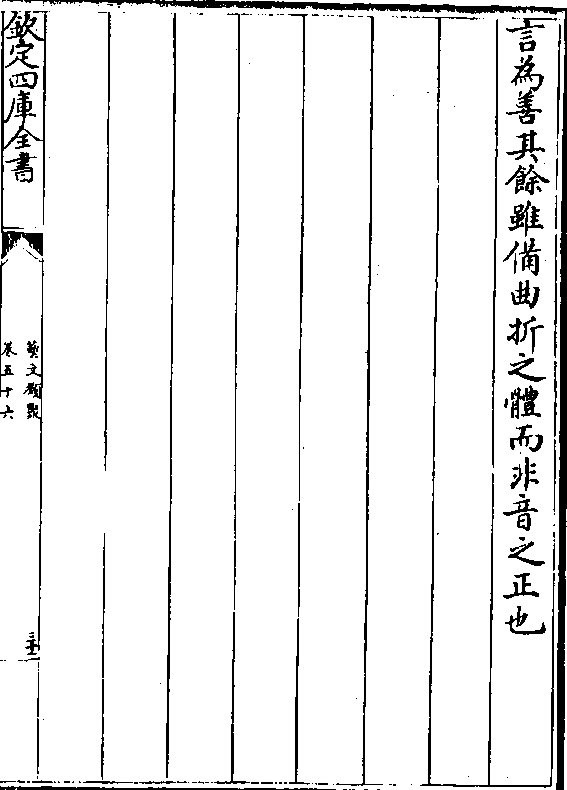 言為善其餘雖備曲折之體而非音之正也
欽定四庫全書
藝文類聚
卷五十六